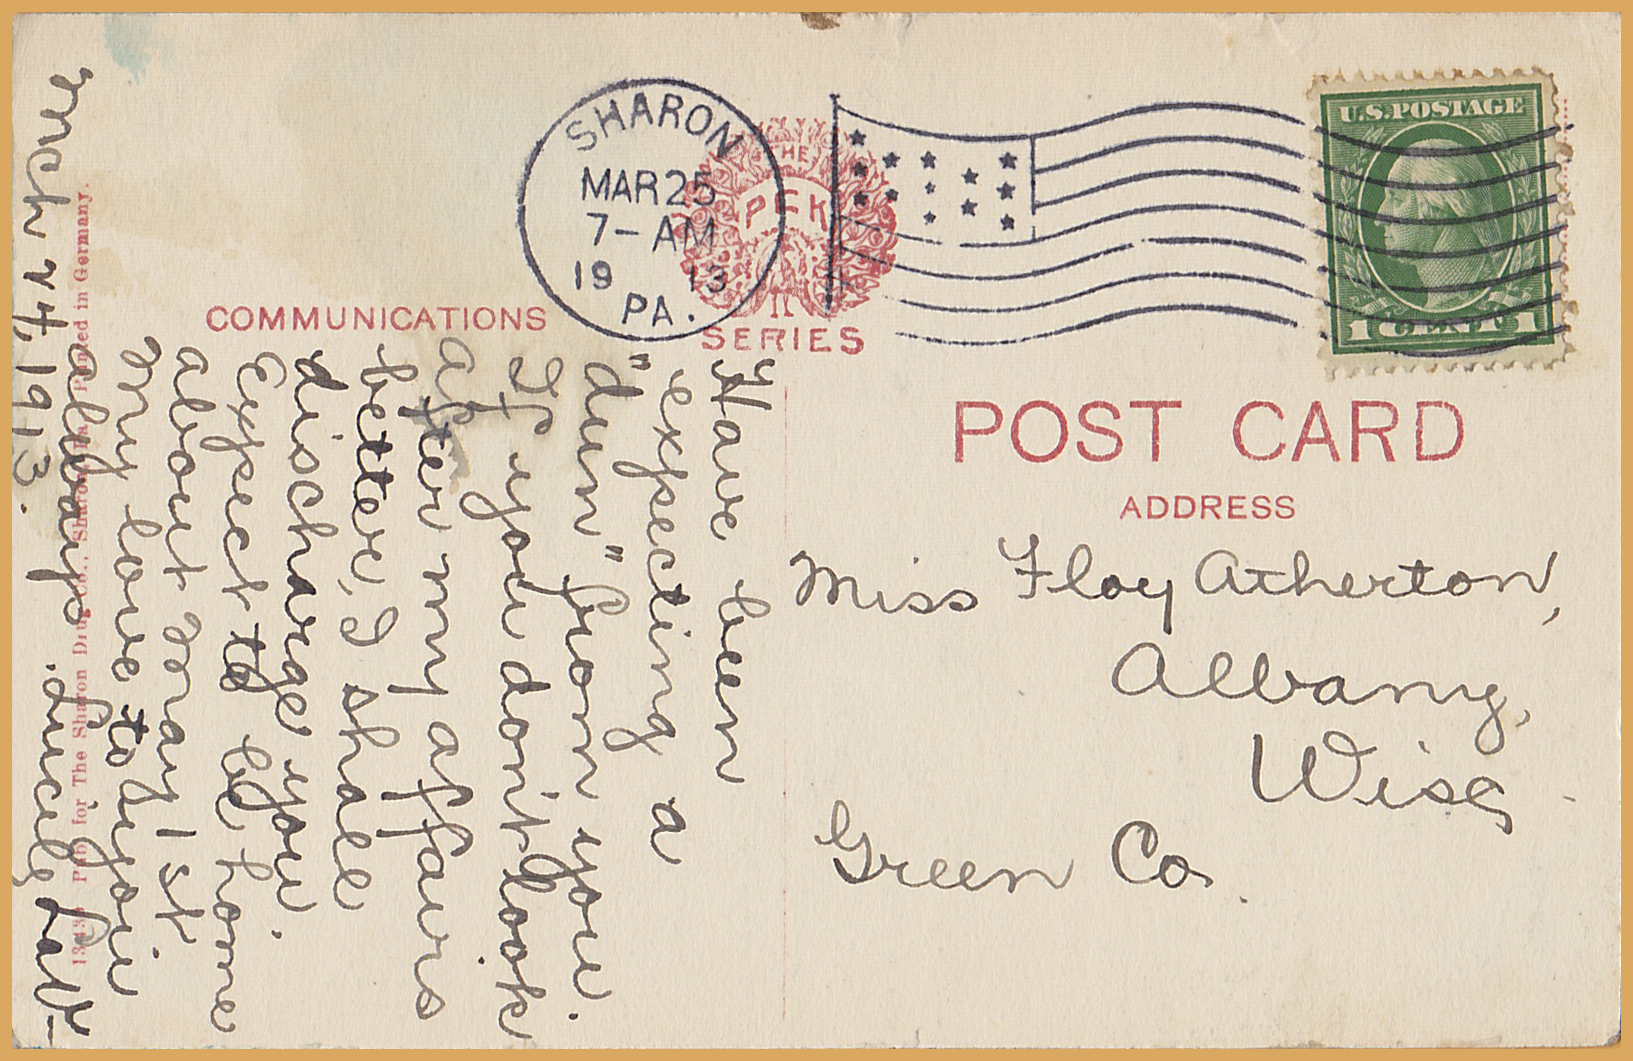 SHARON
MAR 25
7-AM
19 13
PA.
THE
PFK
SERIES
U.S. POSTAGE
1 CENT 1
COMMUNICATIONS
POST CARD
ADDRESS
Miss Floy Atherton,
Albany,
Wisc
Green Co.
Mch 24, 1913.
Have been
expecting a
"dun" from you.
If you don't look
after my affairs
better, I shall
discharge you.
Expect to be home
about May 1st.
My love to you
always
Lucile Law-
13439 Pub. for The Sharon Drug Co., Sharon, Pa. Printed in Germany.